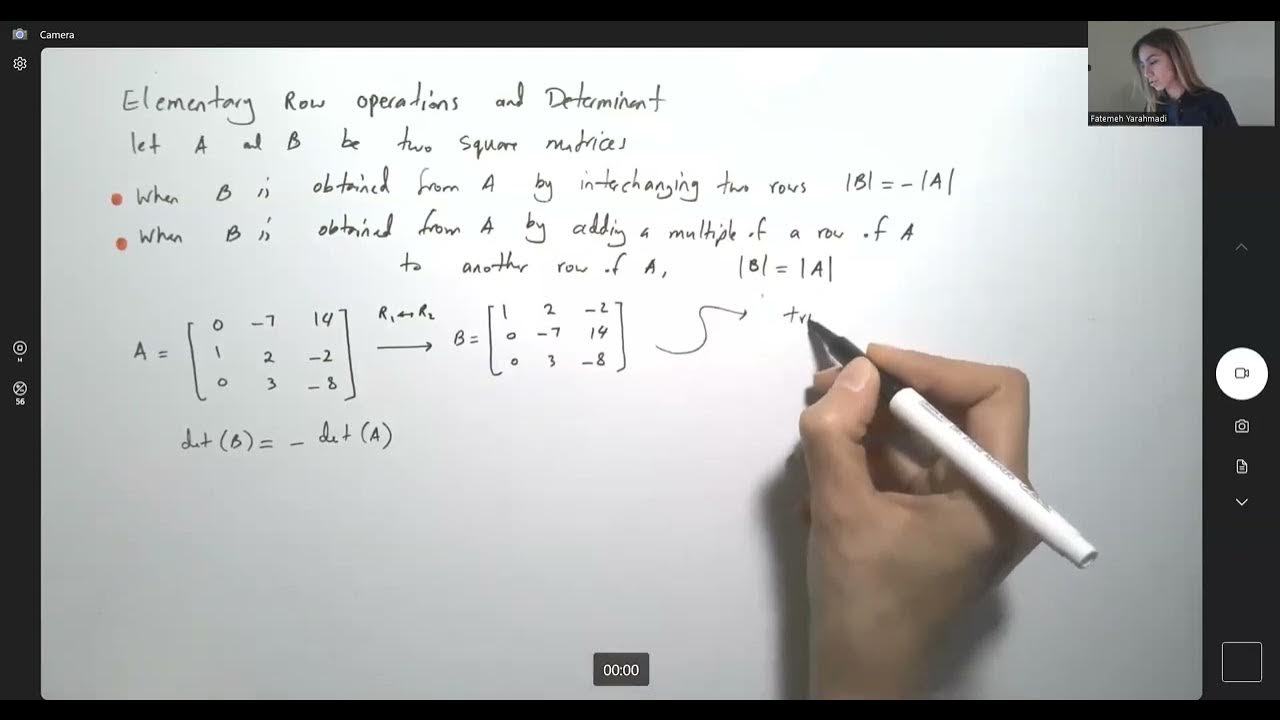 Camera
Fatemeh Yarahmadi
Elementary Row operations and Determinant
let A and B be two square matrices
• When B is obtained from A by interchanging two rows |B| = -|A|
• When B is obtained from A by adding a multiple of a row of A
to another row of A, |B| = |A|
A = [ 0 -7 14 R₁↔R₂ B = [ 1 2 -2
1 2 -2 0 -7 14
0 3 -8 ] 0 3 -8 ]
tr
det(B) = - det(A)
56
00:00